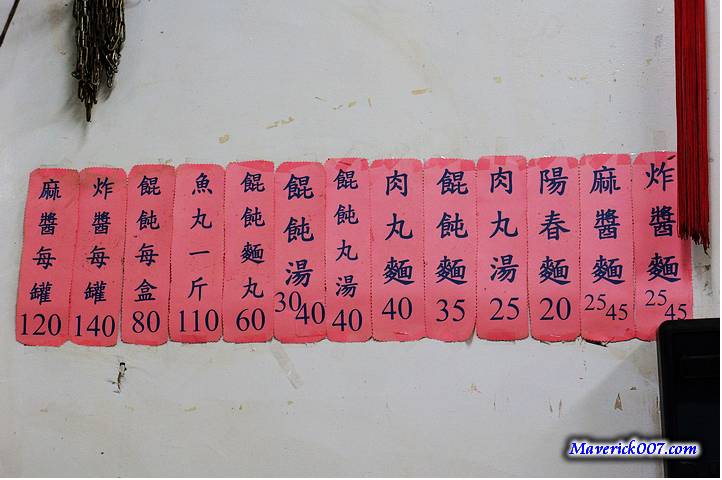 炸醬麵 25 45
麻醬麵 25 45
陽春麵 20
肉丸湯 25
餛飩麵 35
肉丸麵 40
餛飩丸湯 40
餛飩湯 30 40
餛飩麵丸 60
魚丸一斤 110
餛飩每盒 80
炸醬每罐 140
麻醬每罐 120
Maverick007.com